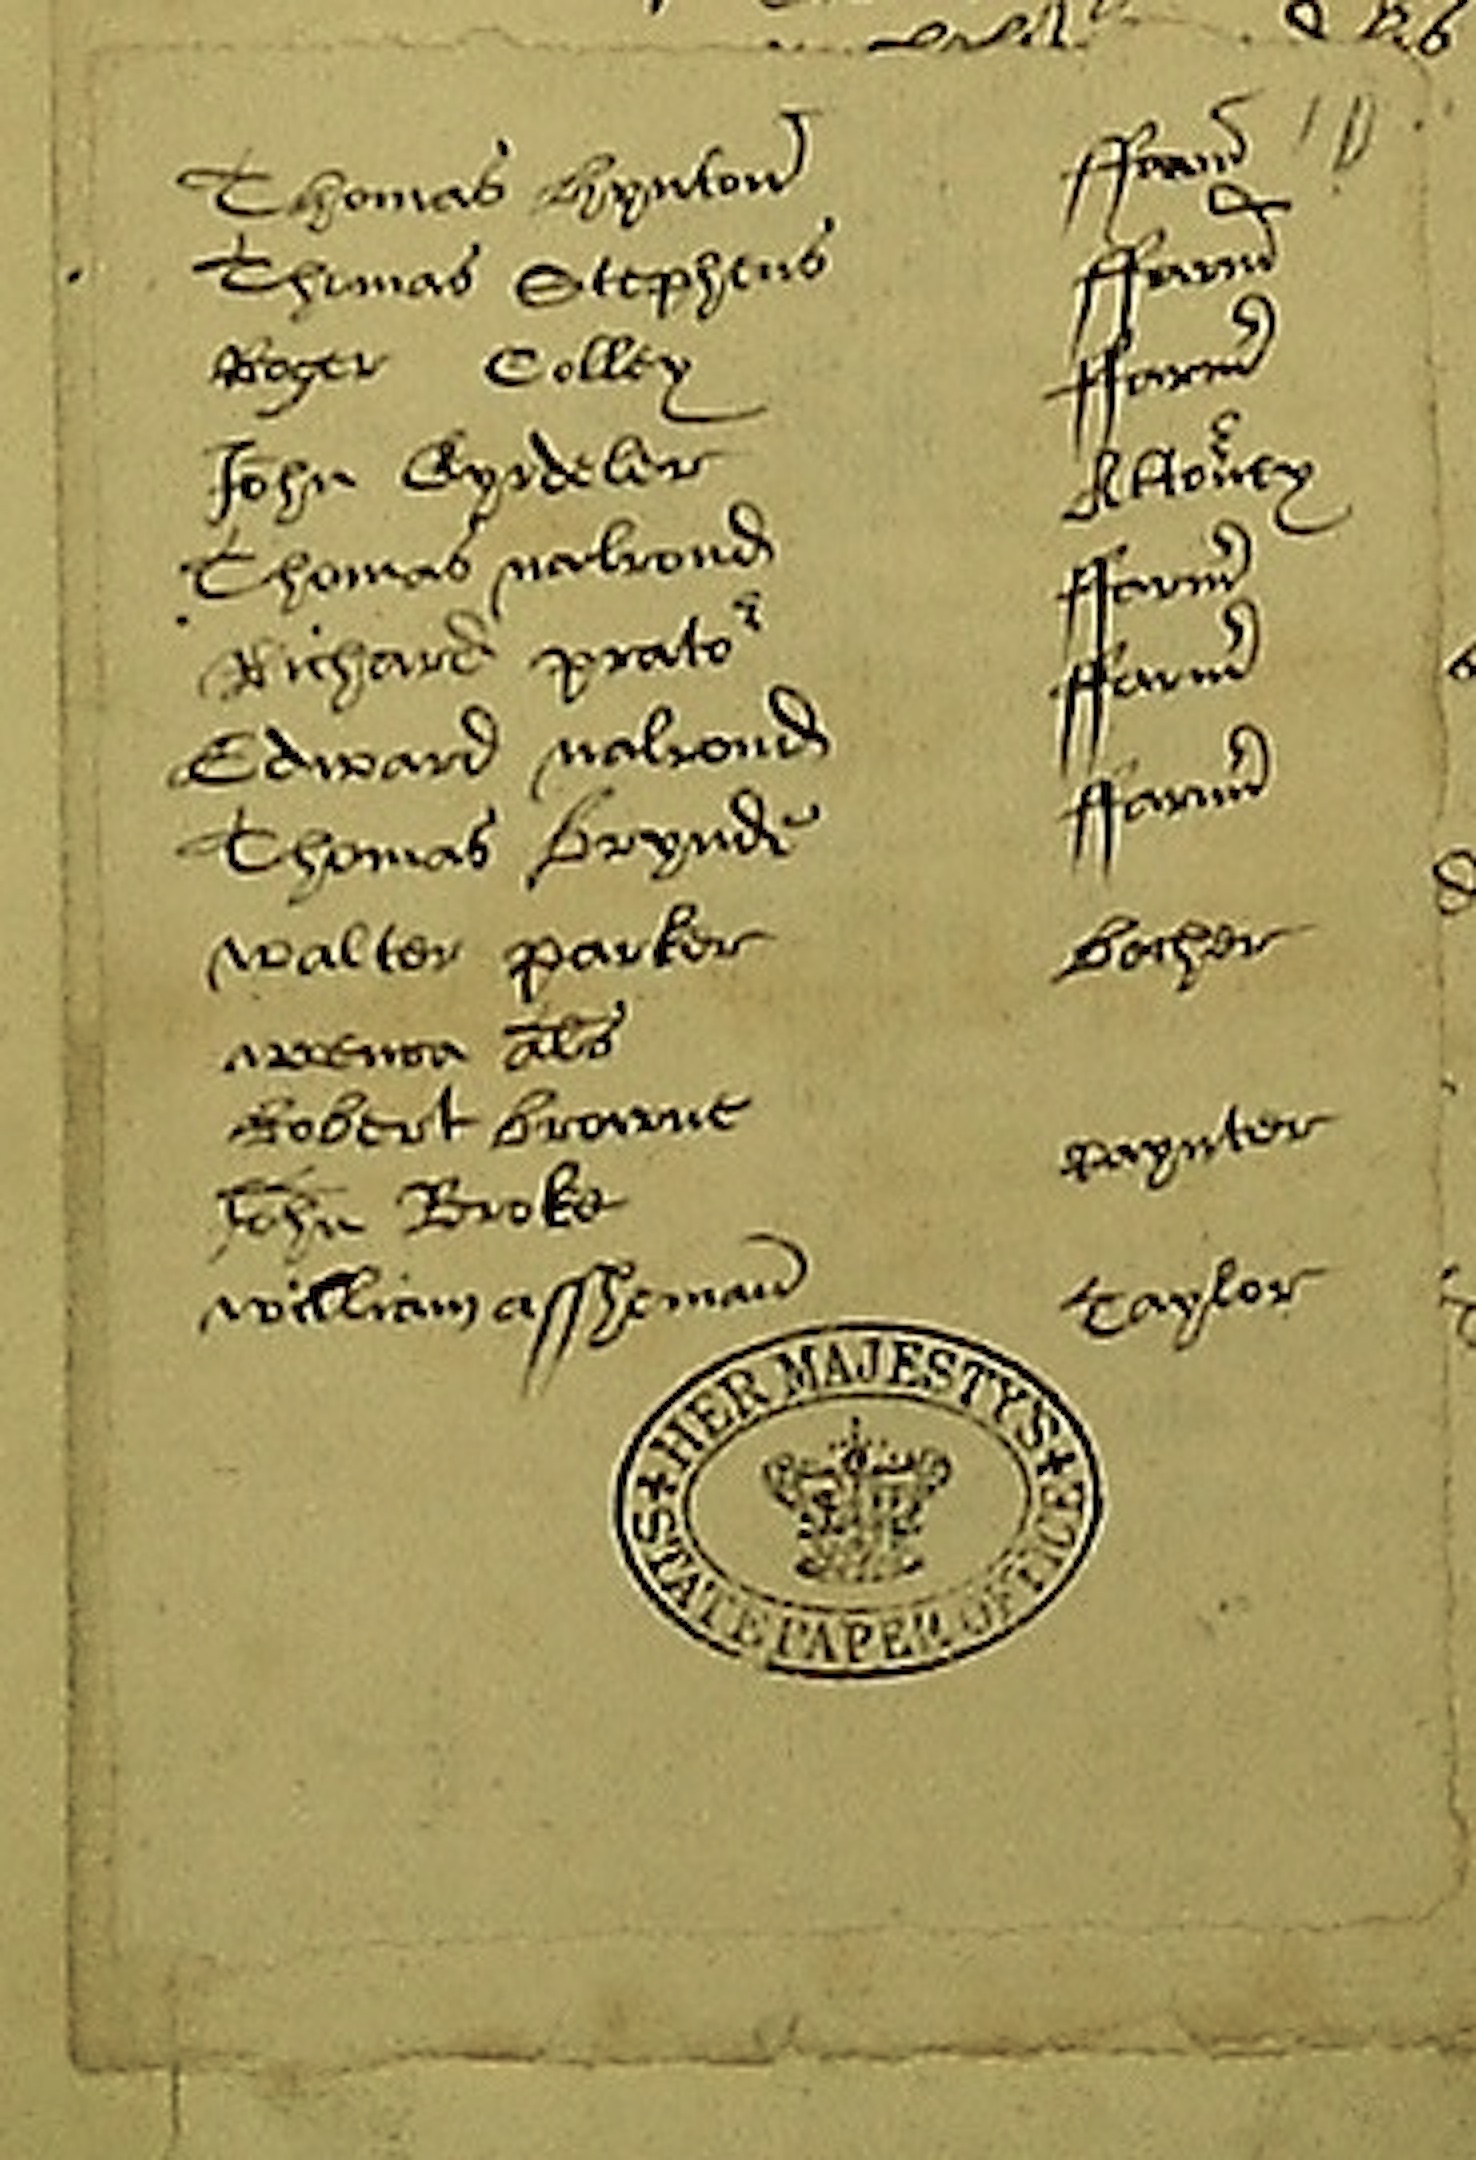 Thomas hynton ffarm
Thomas Stephens ffarm
Roger Colley ffarm
John Gyrdeler Attorney
Thomas walrond ffarm
Richard prator ffarm
Edward walrond
Thomas brynd ffarm
walter parker bocher
als
Robert browne paynter
John Broke
william assheman taylor
HER MAJESTY'S
STATE PAPER OFFICE